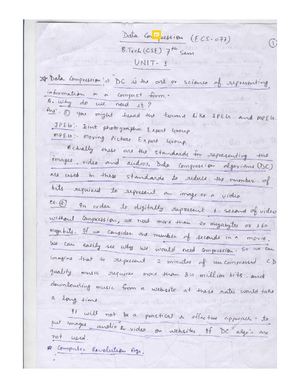 Data Compression (ECS-077)
B.Tech (CSE) 7th Sem
UNIT-1
Data Compression :- DC is the art or science of representing
information in a compact form.
Q. Why do we need it?
Ans: ① You might heard the terms like JPEG and MPEG
JPEG: Joint photographic Expert Group
MPEG: Moving Picture Expert Group
Actually these are the standards for representing the
images, video and audios, Data Compression algorithms (DC)
are used in these standards to reduce the number of
bits required to represent an image or a video
In order to digitally represent 1 second of video
without compression, we need more than 20 megabytes or 160
megabits. If we consider the number of seconds in a movie,
we can easily see why we would need compression. So we can
imagine that to represent 2 minutes of uncompressed CD
quality music requires more than 840 million bits and
downloading music from a website at these rates would take
a long time.
It will not be a practical & effective approach to
put images, audio & video on websites if DC algo's are
not used.
* Computer Revolution Age.